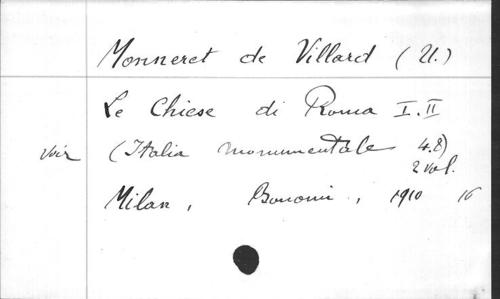 Monneret de Villard (U.)
Le Chiese di Roma I.II
voir (Italia monumentale 4.8)
2 vol.
Milan, Bonomi, 1910 16